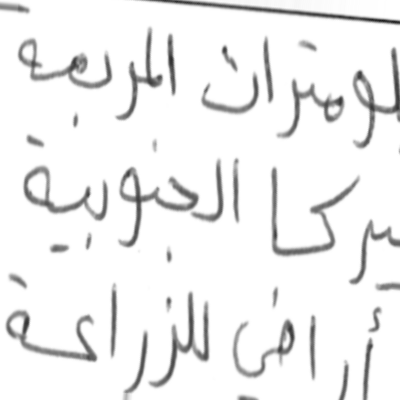 لومترات المربعة
يركا الجنوبية
أراضي للزراعة